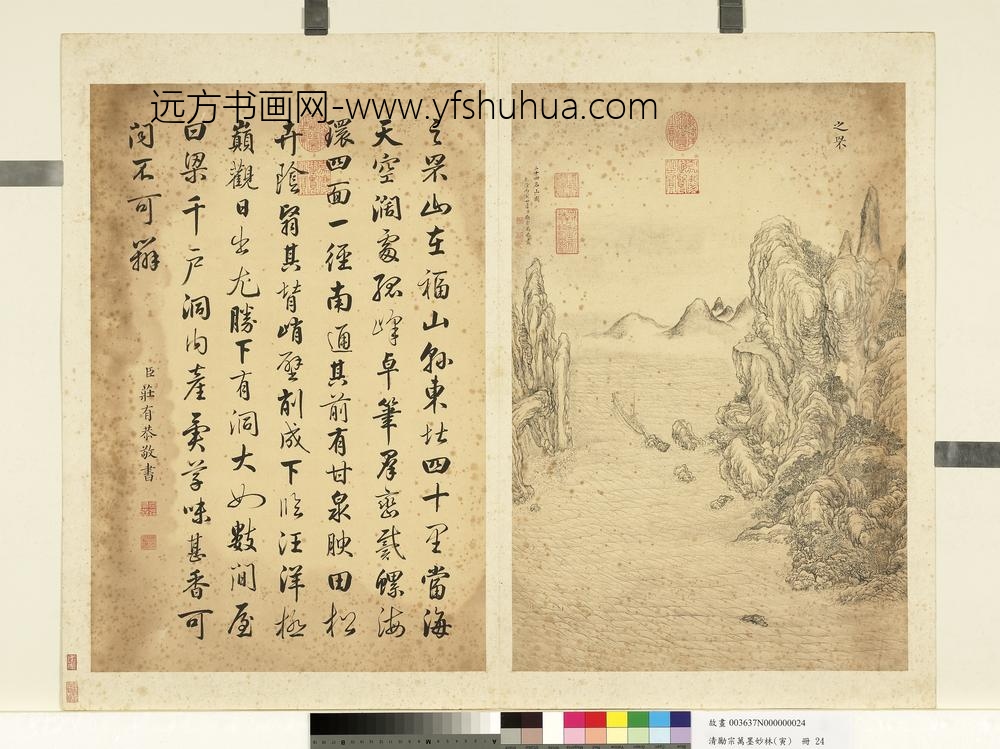 远方书画网-www.yfshuhua.com
之罘
之罘山在福山縣東北四十里當海
天空濶處孤峰卓筆群巒戴螺海
環四面一徑南通其前有甘泉腴田松
卉陰翳其背峭壁削成下临汪洋極
巔觀日出尤勝下有洞大如數間屋
曰梁千户洞内產
味甚香可
不可
臣莊有恭敬書
故畫 003637N000000024
清勵宗萬墨妙林(寅) 冊 24